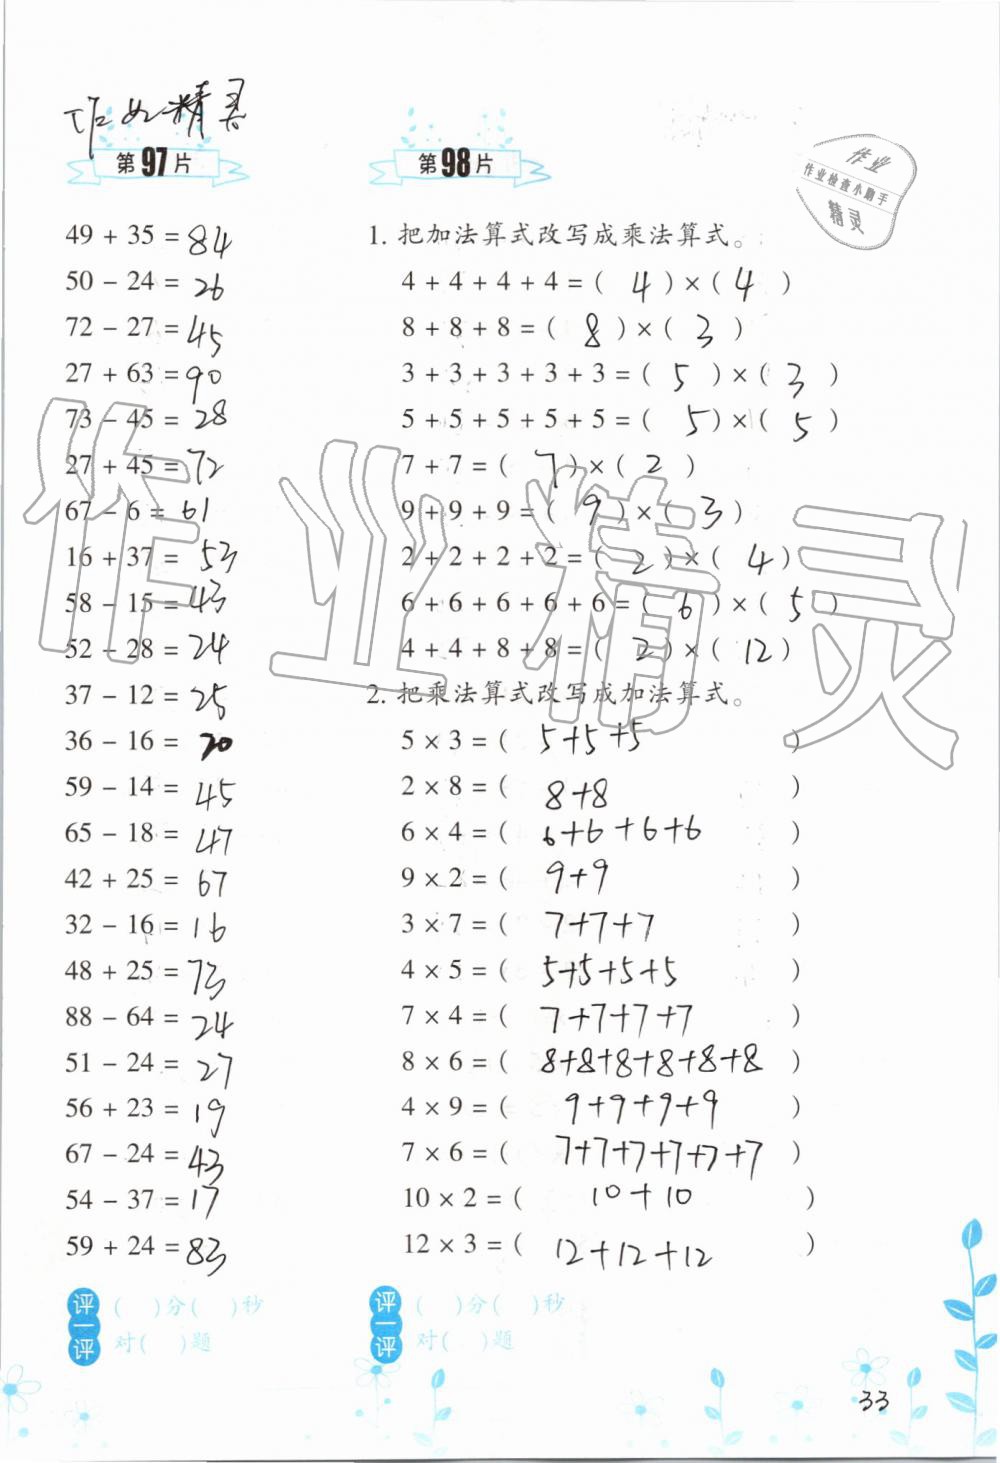 作业精灵
第97片
49 + 35 = 84
50 - 24 = 26
72 - 27 = 45
27 + 63 = 90
73 - 45 = 28
27 + 45 = 72
67 - 6 = 61
16 + 37 = 53
58 - 15 = 43
52 - 28 = 24
37 - 12 = 25
36 - 16 = 20
59 - 14 = 45
65 - 18 = 47
42 + 25 = 67
32 - 16 = 16
48 + 25 = 73
88 - 64 = 24
51 - 24 = 27
56 + 23 = 19
67 - 24 = 43
54 - 37 = 17
59 + 24 = 83
评一评
( )分( )秒
对( )题
第98片
作业
作业检查小助手
精灵
1. 把加法算式改写成乘法算式。
4 + 4 + 4 + 4 = ( 4 ) × ( 4 )
8 + 8 + 8 = ( 8 ) × ( 3 )
3 + 3 + 3 + 3 + 3 = ( 5 ) × ( 3 )
5 + 5 + 5 + 5 + 5 = ( 5 ) × ( 5 )
7 + 7 = ( 7 ) × ( 2 )
9 + 9 + 9 = ( 9 ) × ( 3 )
2 + 2 + 2 + 2 = ( 2 ) × ( 4 )
6 + 6 + 6 + 6 + 6 = ( 6 ) × ( 5 )
4 + 4 + 8 + 8 = ( 2 ) × ( 12 )
2. 把乘法算式改写成加法算式。
5 × 3 = ( 5+5+5 )
2 × 8 = ( 8+8 )
6 × 4 = ( 6+6+6+6 )
9 × 2 = ( 9+9 )
3 × 7 = ( 7+7+7 )
4 × 5 = ( 5+5+5+5 )
7 × 4 = ( 7+7+7+7 )
8 × 6 = ( 8+8+8+8+8+8 )
4 × 9 = ( 9+9+9+9 )
7 × 6 = ( 7+7+7+7+7+7 )
10 × 2 = ( 10+10 )
12 × 3 = ( 12+12+12 )
评一评
( )分( )秒
对( )题
作业精灵
33